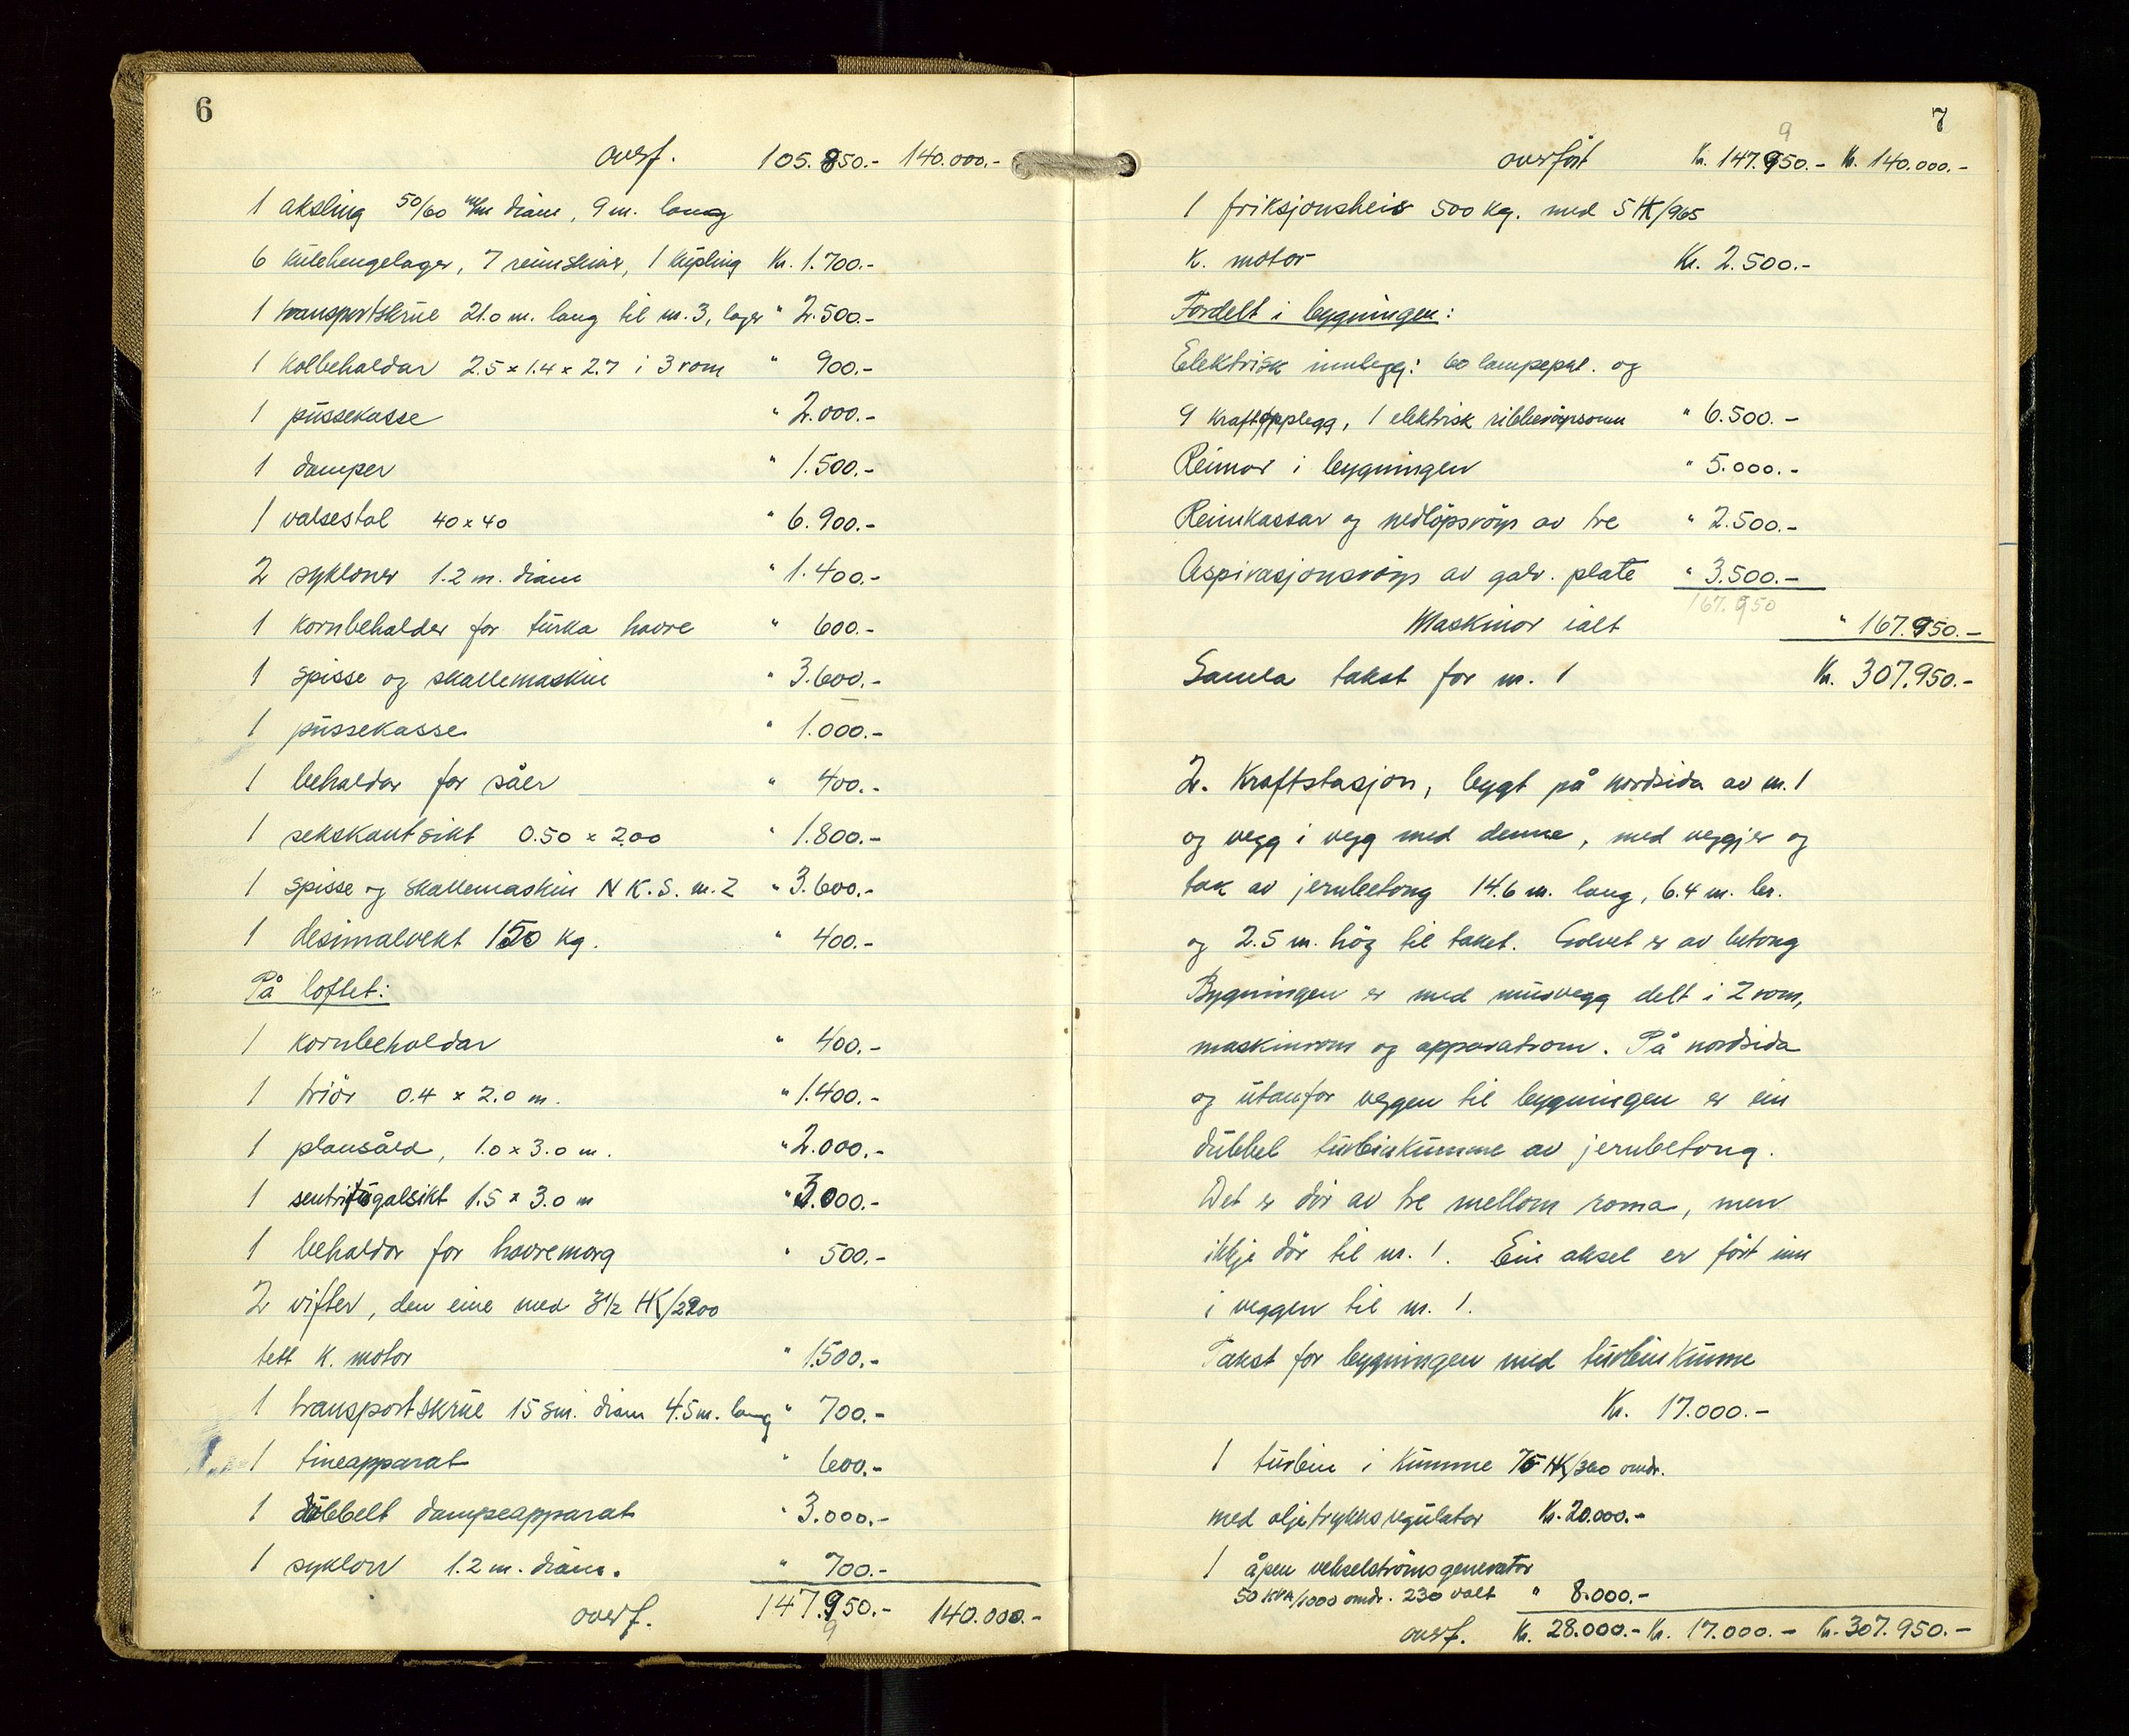 6
overf. 105.850.- 140.000.-
1 aksling 50/60 m/m diam, 9 m. lang
6 kulehengelager, 7 reimskiver, 1 kupling Kr. 1.700.-
1 transportskrue 21.0 m. lang til nr. 3, lager " 2.500.-
1 kolbehaldar 2.5 x 1.4 x 2.7 i 3 rom " 900.-
1 pussekasse " 2.000.-
1 damper " 1.500.-
1 valsestol 40 x 40 " 6.900.-
2 sykloner 1.2 m. diam " 1.400.-
1 kornbehalder for turka havre " 600.-
1 spisse og skallemaskin " 3.600.-
1 pussekasse " 1.000.-
1 behaldar for såer " 400.-
1 sekskantsikt 0.50 x 2.00 " 1.800.-
1 spisse og skallemaskin N K. S. nr. 2 " 3.600.-
1 desimalvekt 150 kg. " 400.-
På loftet:
1 kornbehaldar " 400.-
1 triör 0.4 x 2.0 m. " 1.400.-
1 plansåld, 1.0 x 3.0 m. " 2.000.-
1 sentrifugalsikt 1.5 x 3.0 m " 3.000.-
1 behaldar for havremarg " 500.-
2 vifter, den eine med 3½ HK/2900
tett k. motor " 1.500.-
1 transportskrue 15 sm. diam 4.5 m. lang " 700.-
1 tineapparat " 600.-
1 dubbelt dampeapparat " 3.000.-
1 syklon 1.2 m. diam. " 700.-
overf. 147.950.- 140.000.-
9
7
9
overfört Kr. 147.950.- Kr. 140.000.-
1 friksjonsheis 500 kg. med 5 HK/965
k. motor Kr. 2.500.-
Fordelt i bygningen:
Elektrisk innlegg: 60 lampepkt. og
9 kraftopplegg, 1 elektrisk ribberöyrsomn " 6.500.-
Reimar i bygningen " 5.000.-
Reimkassar og nedlöpsröyr av tre " 2.500.-
Aspirasjonsröyr av galv. plate " 3.500.-
167.950
Maskinor ialt " 167.950.-
Samla takst for nr. 1 Kr. 307.950.-
2. Kraftstasjon, bygt på nordsida av nr. 1
og vegg i vegg med denne, med veggjer og
tak av jernbetong 14.6 m. lang, 6.4 m. br.
og 2.5 m. hög til taket. Golvet er av betong
Bygningen er med mursvegg delt i 2 rom,
maskinrom og apparatrom. På nordsida
og utanfor veggen til bygningen er ein
dubbel turbinkumme av jernbetong.
Det er dör av tre mellom roma, men
ikkje dör til nr. 1. Ein aksel er fört inn
i veggen til nr. 1.
Takst for bygningen med turbinkumme
Kr. 17.000.-
1 turbin i kumme 75 HK/360 omdr.
med oljetrykksregulator Kr. 20.000.-
1 åpen vekselströmsgenerator
50 KVA/1000 omdr. 230 volt " 8.000.-
overf. Kr. 28.000.- Kr. 17.000.- Kr. 307.950.-